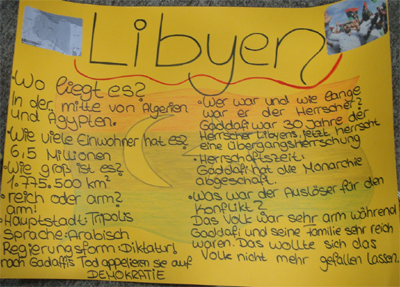 Libyen
• Wo liegt es?
In der mitte von Algerien
und Ägypten.
• Wie viele Einwohner hat es?
6,5 Millionen
• Wie groß ist es?
1.775.500 km²
• reich oder arm?
arm!
• Hauptstadt: Tripolis
Sprache: Arabisch
Regierungsform: Diktatur!
nach Gadaffis Tod appelieren sie auf
DEMOKRATIE
• Wer war und wie lange
war er der Herrscher?
Gaddafi war 30 Jahre der
Herrscher Libyens, jetzt herrscht
eine Übergangsherrschung
• Herrschaftszeit:
Gaddafi hat die Monarchie
abgeschaft.
• Was war der Auslöser für den
Konflikt?
Das Volk war sehr arm während
Gaddafi und seine Familie sehr reich
waren. Das wollte sich das
Volk nicht mehr gefallen lassen.